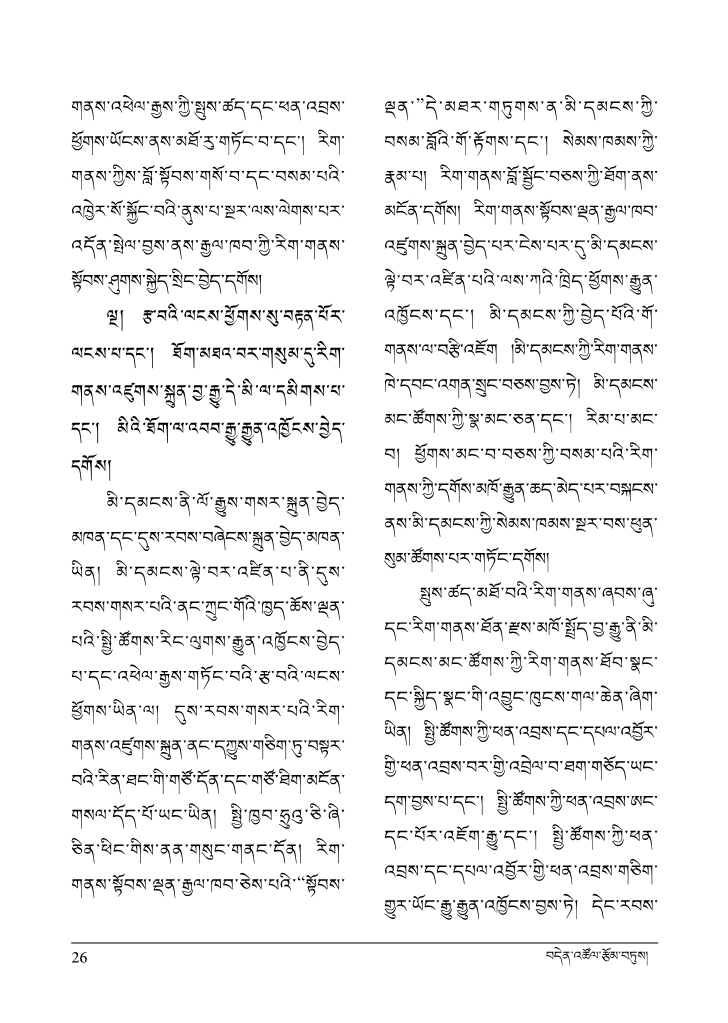 གནས་འཕེལ་རྒྱས་ཀྱི་སྤུས་ཚད་དང་ཕན་འབྲས་
ཕྱོགས་ཡོངས་ནས་མཐོ་རུ་གཏོང་བ་དང་། རིག་
གནས་ཀྱིས་བློ་སྟོབས་གསོ་བ་དང་བསམ་པའི་
འཁྱེར་སོ་སྐྱོང་བའི་ནུས་པ་སྔར་ལས་ལེགས་པར་
འདོན་སྤེལ་བྱས་ནས་རྒྱལ་ཁབ་ཀྱི་རིག་གནས་
སྟོབས་ཤུགས་སྐྱེད་སྲིང་བྱེད་དགོས།
ལྔ། རྩ་བའི་ལངས་ཕྱོགས་སུ་བརྟན་པོར་
ལངས་པ་དང་། ཐོག་མཐའ་བར་གསུམ་དུ་རིག་
གནས་འཛུགས་སྐྲུན་བྱ་རྒྱུ་དེ་མི་ལ་དམིགས་པ་
དང་། མིའི་ཐོག་ལ་འབབ་རྒྱུ་རྒྱུན་འཁྱོངས་བྱེད་
དགོས།
མི་དམངས་ནི་ལོ་རྒྱུས་གསར་སྐྲུན་བྱེད་
མཁན་དང་དུས་རབས་བཞེངས་སྐྲུན་བྱེད་མཁན་
ཡིན། མི་དམངས་ལྟེ་བར་འཛིན་པ་ནི་དུས་
རབས་གསར་པའི་ནང་ཀྲུང་གོའི་ཁྱད་ཆོས་ལྡན་
པའི་སྤྱི་ཚོགས་རིང་ལུགས་རྒྱུན་འཁྱོངས་བྱེད་
པ་དང་འཕེལ་རྒྱས་གཏོང་བའི་རྩ་བའི་ལངས་
ཕྱོགས་ཡིན་ལ། དུས་རབས་གསར་པའི་རིག་
གནས་འཛུགས་སྐྲུན་ནང་དཀྱུས་གཅིག་ཏུ་བསྟར་
བའི་རིན་ཐང་གི་གཙོ་དོན་དང་གཙོ་ཐིག་མངོན་
གསལ་དོད་པོ་ཡང་ཡིན། སྤྱི་ཁྱབ་ཧྲུའུ་ཅི་ཞི་
ཅིན་ཕིང་གིས་ནན་གསུང་གནང་དོན། རིག་
གནས་སྟོབས་ལྡན་རྒྱལ་ཁབ་ཅེས་པའི་“སྟོབས་
ལྡན་”དེ་མཐར་གཏུགས་ན་མི་དམངས་ཀྱི་
བསམ་བློའི་གོ་རྟོགས་དང་། སེམས་ཁམས་ཀྱི་
རྣམ་པ། རིག་གནས་བློ་སྦྱོང་བཅས་ཀྱི་ཐོག་ནས་
མངོན་དགོས། རིག་གནས་སྟོབས་ལྡན་རྒྱལ་ཁབ་
འཛུགས་སྐྲུན་བྱེད་པར་ངེས་པར་དུ་མི་དམངས་
ལྟེ་བར་འཛིན་པའི་ལས་ཀའི་ཁྲིད་ཕྱོགས་རྒྱུན་
འཁྱོངས་དང་། མི་དམངས་ཀྱི་བྱེད་པོའི་གོ་
གནས་ལ་བརྩི་འཇོག །མི་དམངས་ཀྱི་རིག་གནས་
ཁེ་དབང་འགན་སྲུང་བཅས་བྱས་ཏེ། མི་དམངས་
མང་ཚོགས་ཀྱི་སྣ་མང་ཅན་དང་། རིམ་པ་མང་
བ། ཕྱོགས་མང་བ་བཅས་ཀྱི་བསམ་པའི་རིག་
གནས་ཀྱི་དགོས་མཁོ་རྒྱུན་ཆད་མེད་པར་བསྐངས་
ནས་མི་དམངས་ཀྱི་སེམས་ཁམས་སྔར་བས་ཕུན་
སུམ་ཚོགས་པར་གཏོང་དགོས།
སྤུས་ཚད་མཐོ་བའི་རིག་གནས་ཞབས་ཞུ་
དང་རིག་གནས་ཐོན་རྫས་མཁོ་སྤྲོད་བྱ་རྒྱུ་ནི་མི་
དམངས་མང་ཚོགས་ཀྱི་རིག་གནས་ཐོབ་སྣང་
དང་སྐྱིད་སྣང་གི་འབྱུང་ཁུངས་གལ་ཆེན་ཞིག་
ཡིན། སྤྱི་ཚོགས་ཀྱི་ཕན་འབྲས་དང་དཔལ་འབྱོར་
གྱི་ཕན་འབྲས་བར་གྱི་འབྲེལ་བ་ཐག་གཅོད་ཡང་
དག་བྱས་པ་དང་། སྤྱི་ཚོགས་ཀྱི་ཕན་འབྲས་ཨང་
དང་པོར་འཇོག་རྒྱུ་དང་། སྤྱི་ཚོགས་ཀྱི་ཕན་
འབྲས་དང་དཔལ་འབྱོར་གྱི་ཕན་འབྲས་གཅིག་
གྱུར་ཡོང་རྒྱུ་རྒྱུན་འཁྱོངས་བྱས་ཏེ། དེང་རབས་
26
བདེན་འཚོལ་རྩོམ་བཏུས།